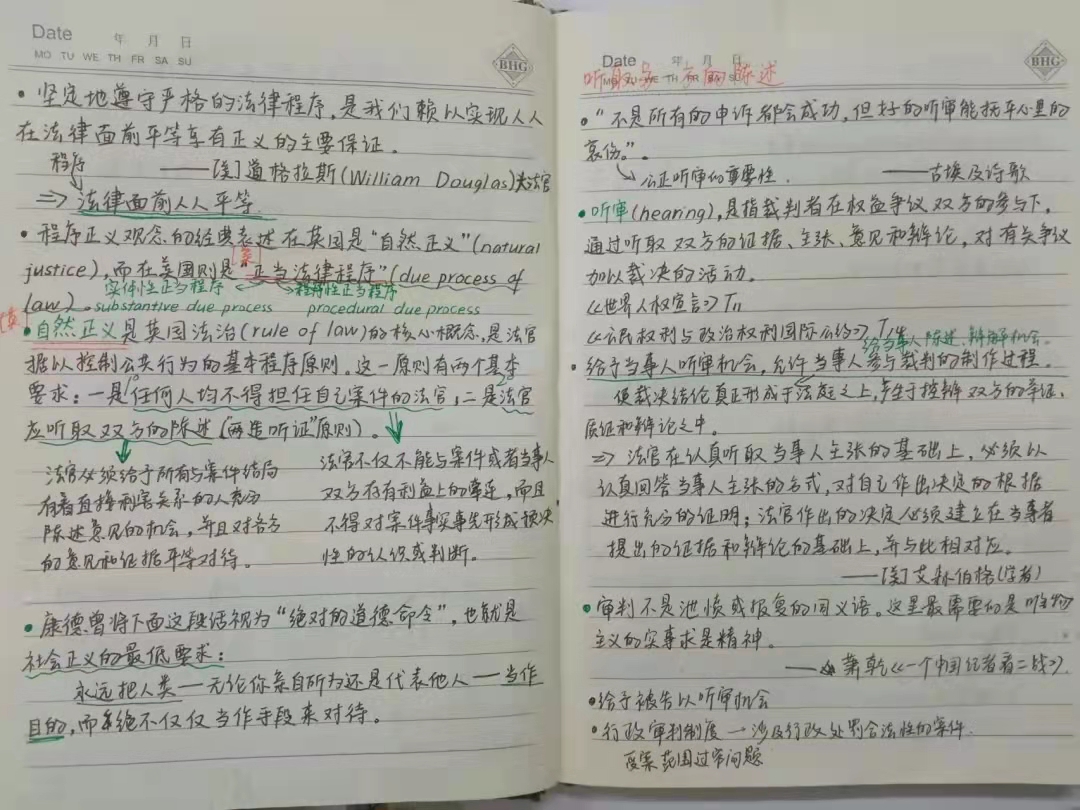 Date 年 月 日
MO TU WE TH FR SA SU
BHG
• 坚定地遵守严格的法律程序,是我们赖以实现人人
在法律面前平等享有正义的主要保证。
程序
——[美]道格拉斯(William Douglas)大法官
⇒ 法律面前人人平等.
• 程序正义观念的经典表述在英国是“自然正义”(natural
justice),而在美国则是“正当法律程序”(due process of
law)。
实体性正当程序 程序性正当程序
substantive due process procedural due process
• 自然正义是英国法治(rule of law)的核心概念,是法官
据以控制公共行为的基本程序原则。这一原则有两个基本
要求:一是任何人均不得担任自己案件的法官,二是法官
应听取双方的陈述(“两造听证”原则)。
法官必须给予所有与案件结局
有着直接利害关系的人充分
陈述意见的机会,并且对各方
的意见和证据平等对待。
法官不仅不能与案件或者当事人
双方存有利益上的牵连,而且
不得对案件事实事先形成预决
性的认识或判断。
• 康德曾将下面这段话视为“绝对的道德命令”,也就是
社会正义的最低要求:
永远把人类—无论你亲自所为还是代表他人——当作
目的,而绝不仅仅当作手段来对待。
Date 年 月 日
MO TU WE TH FR SA SU
BHG
听取另一方的陈述
• “不是所有的申诉都会成功,但好的听审能抚平心里的
哀伤。”
公正听审的重要性. ——古埃及诗歌
• 听审(hearing),是指裁判者在权益争议双方的参与下,
通过听取双方的证据、主张、意见和辩论,对有关争议
加以裁决的活动。
《世界人权宣言》T11
《公民权利与政治权利国际公约》T14
给当事人陈述、辩解机会.
• 给予当事人听审机会,允许当事人参与裁判的制作过程.
使裁决结论真正形成于法庭之上,产生于控辩双方的举证、
质证和辩论之中。
⇒ 法官在认真听取当事人主张的基础上,必须以
认真回答当事人主张的方式,对自己作出决定的根据
进行充分的证明;法官作出的决定必须建立在当事者
提出的证据和辩论的基础上,并与此相对应。
——[美]艾森伯格(学者)
• 审判不是泄愤或报复的同义语。这里最需要的是唯物
主义的实事求是精神。
——萧乾《一个中国记者看二战》.
• 给予被告以听审机会
• 行政审判制度 → 涉及行政处罚合法性的案件.
受案范围过窄问题